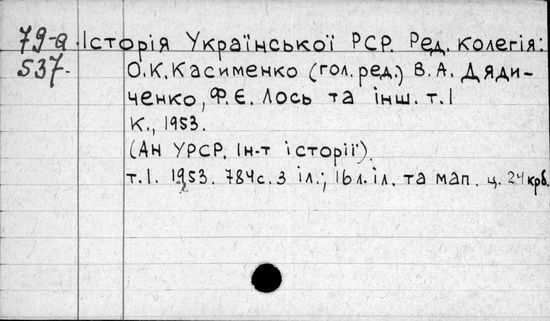 79-а Історія Української РСР. Ред. колегія:
537. О.К. Касименко (гол. ред.) В.А. Дяди-
ченко, Ф.Є. Лось та інш. т. I
К., 1953.
(Ан УРСР. Ін-т історії).
т. I. 1953. 784с. з іл.; 16 л. іл. та мап. ц. 24 крб.